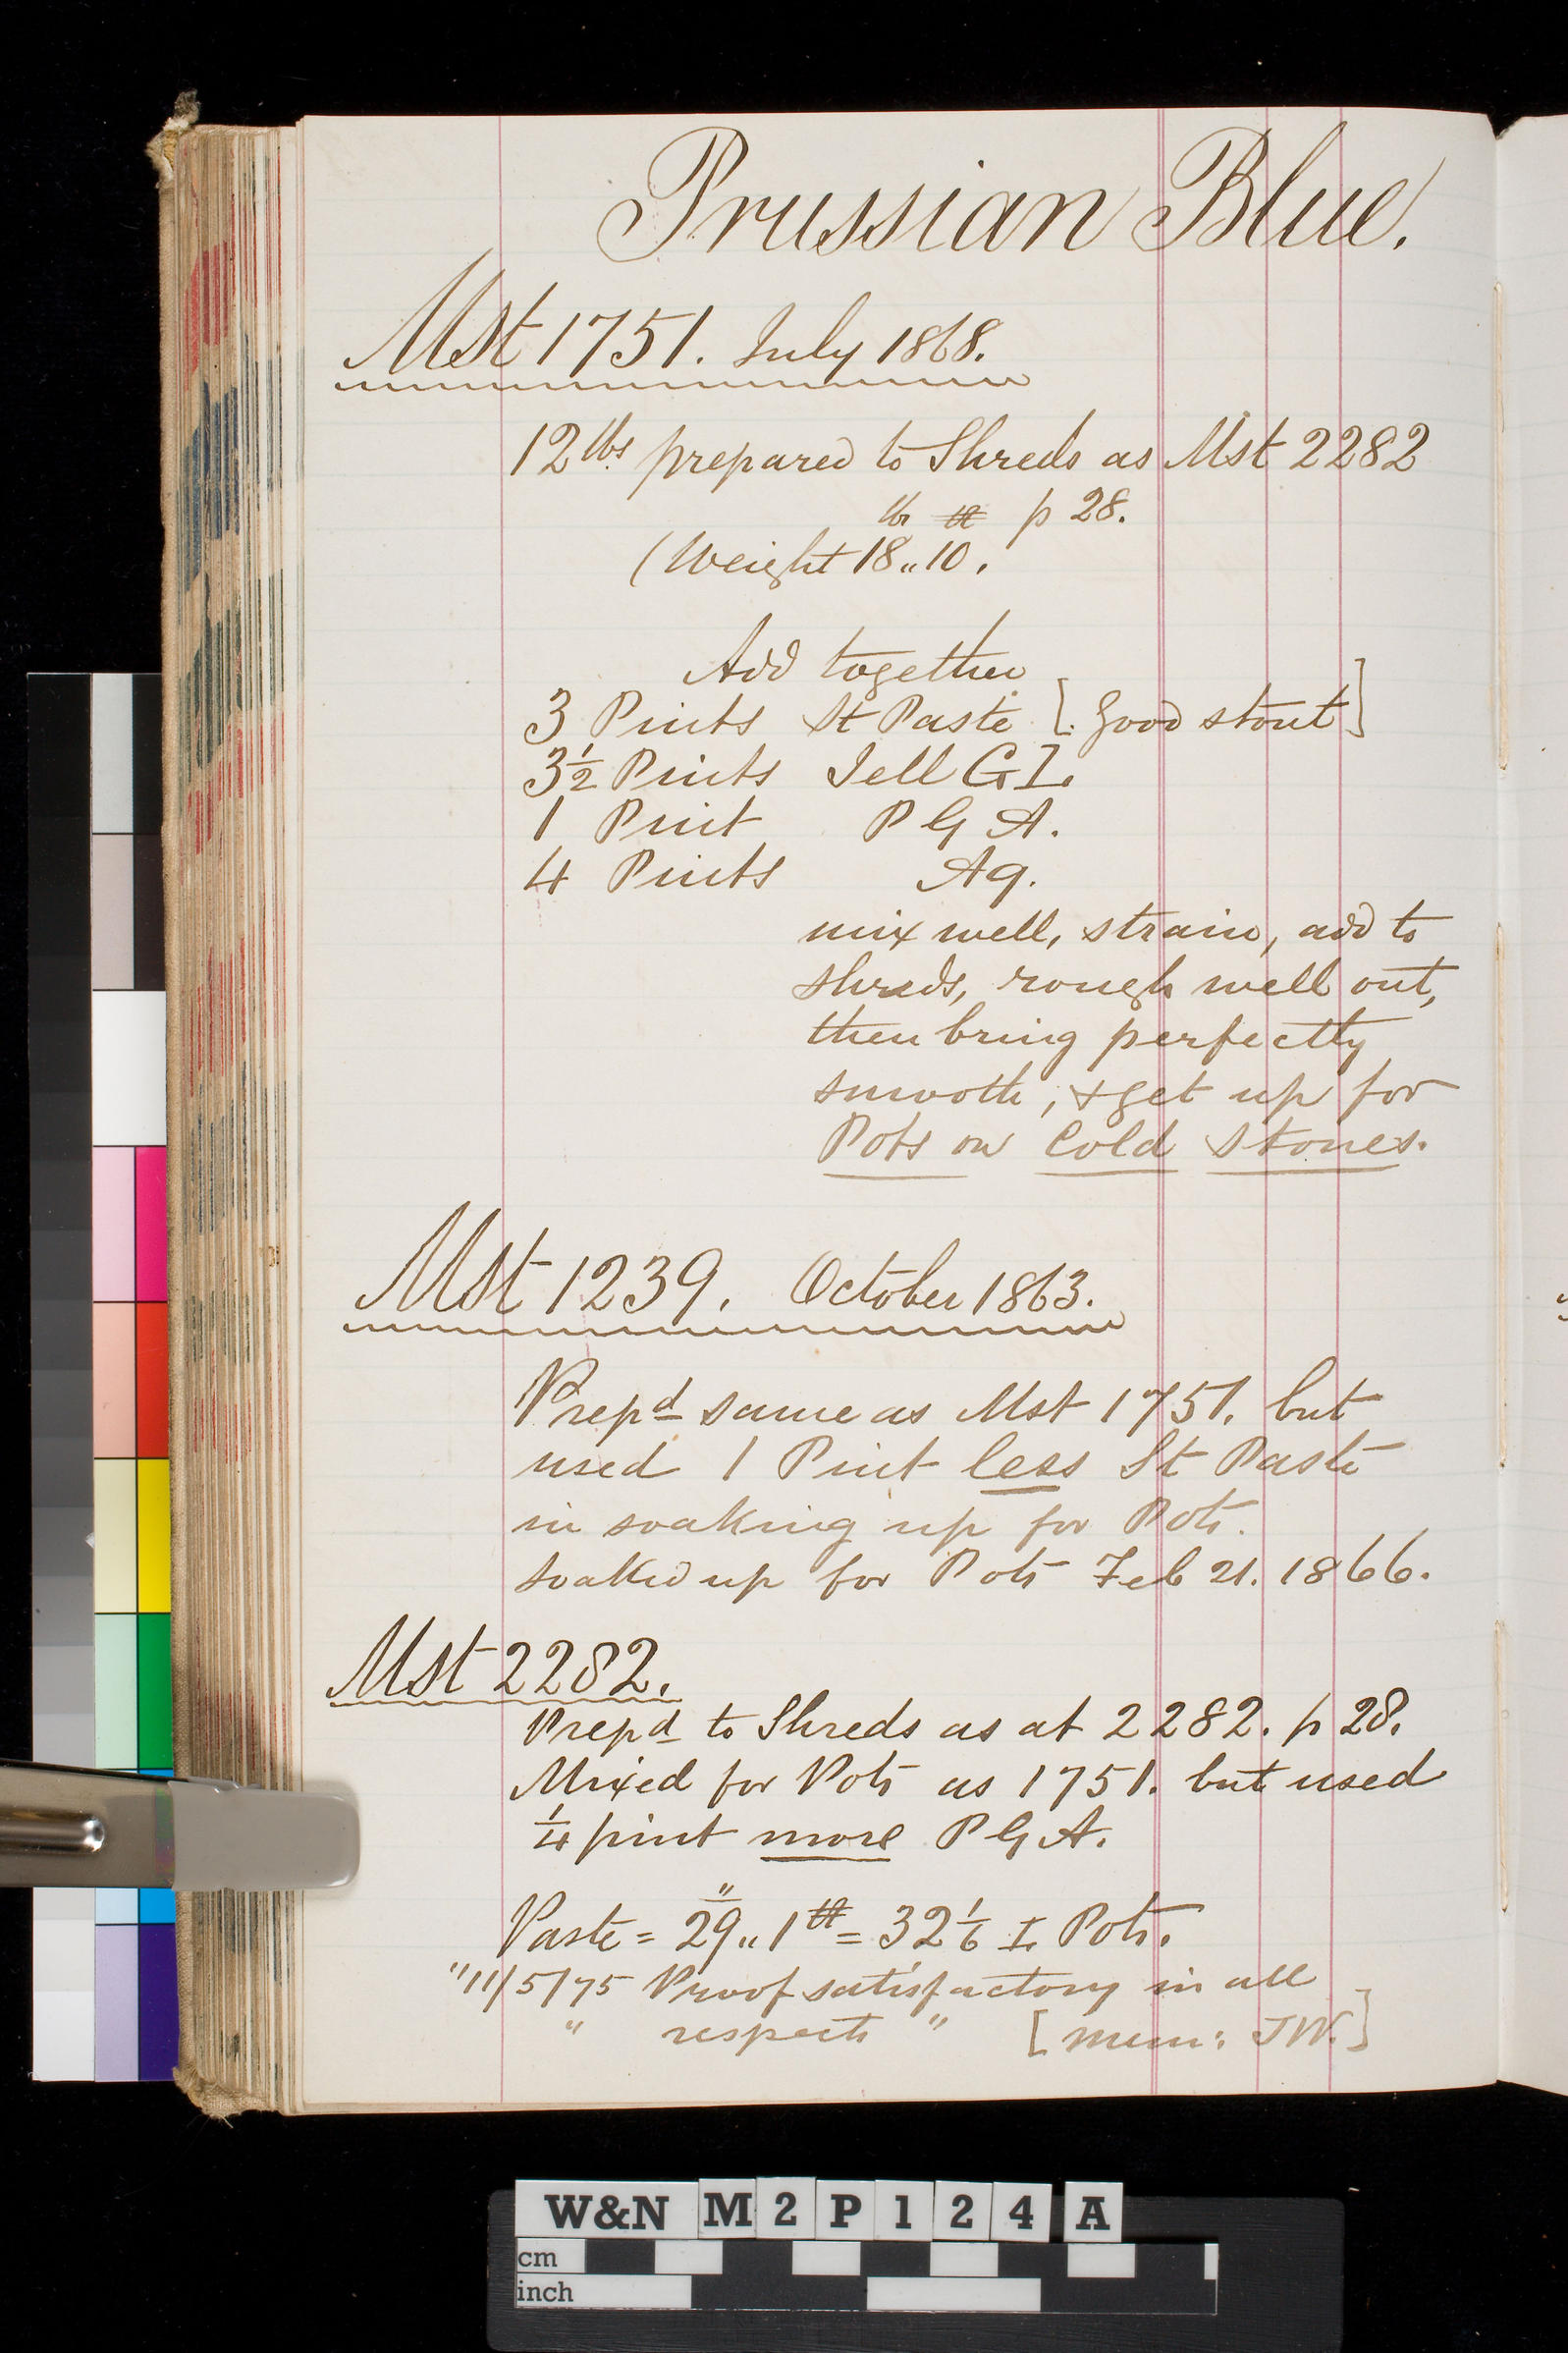 Prussian Blue.
Mst 1751. July 1868.
12 lbs prepared to Shreds as Mst 2282
p 28.
(Weight 18 ,, 10.
Add together
3 Pints St Paste [Good stout]
3½ Pints Jell GL
1 Pint P G A.
4 Pints Aq.
mix well, strain, add to
shreds, rough well out,
then bring perfectly
smooth, & get up for
Pots on Cold Stones.
Mst 1239. October 1863.
Prepd same as Mst 1751. but
used 1 Pint less St Paste
in soaking up for Pots.
soaked up for Pots Feb 21. 1866.
Mst 2282.
Prepd to Shreds as at 2282. p 28.
Mixed for Pots as 1751. but used
¼ pint more P G A.
Paste = 29 ,, 1 = 32 1/6 Pots.
"11/5/75 Proof satisfactory in all
" respects " [mem: JW.]
W&N M2P124A
cm
inch